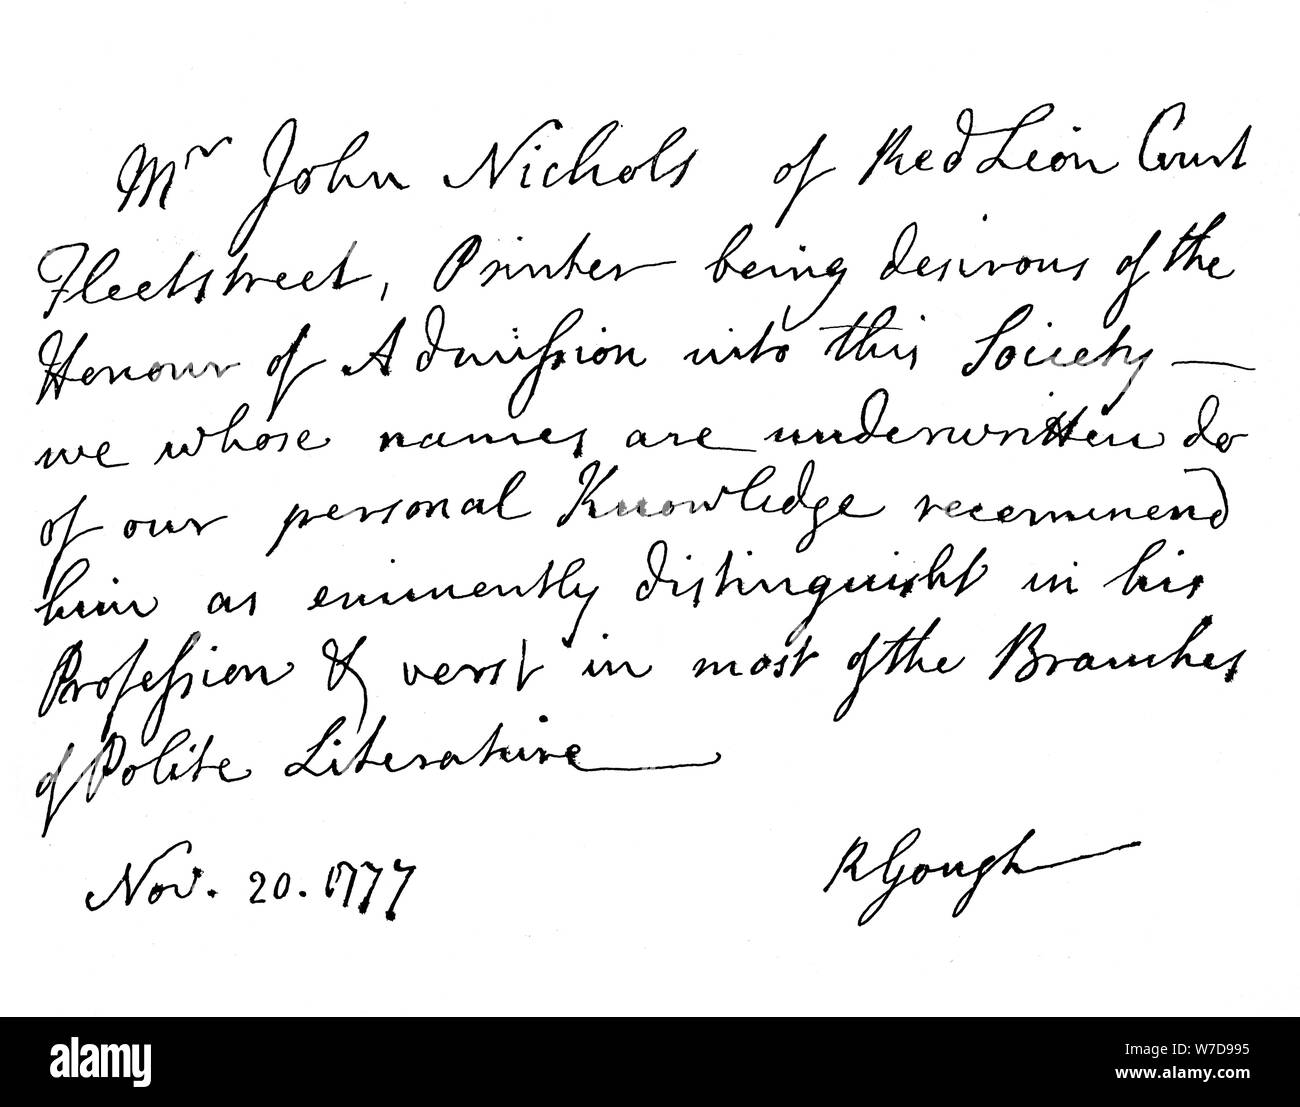 Mr John Nichols of Red Lion Court
Fleetstreet, Printer being desirous of the
Honour of Admission into this Society —
we whose names are underwritten do
of our personal Knowledge recommend
him as eminently distinguisht in his
Profession & verst in most of the Branches
of Polite Literature
Nov. 20. 1777
R Gough
alamy
Image ID: W7D995
www.alamy.com